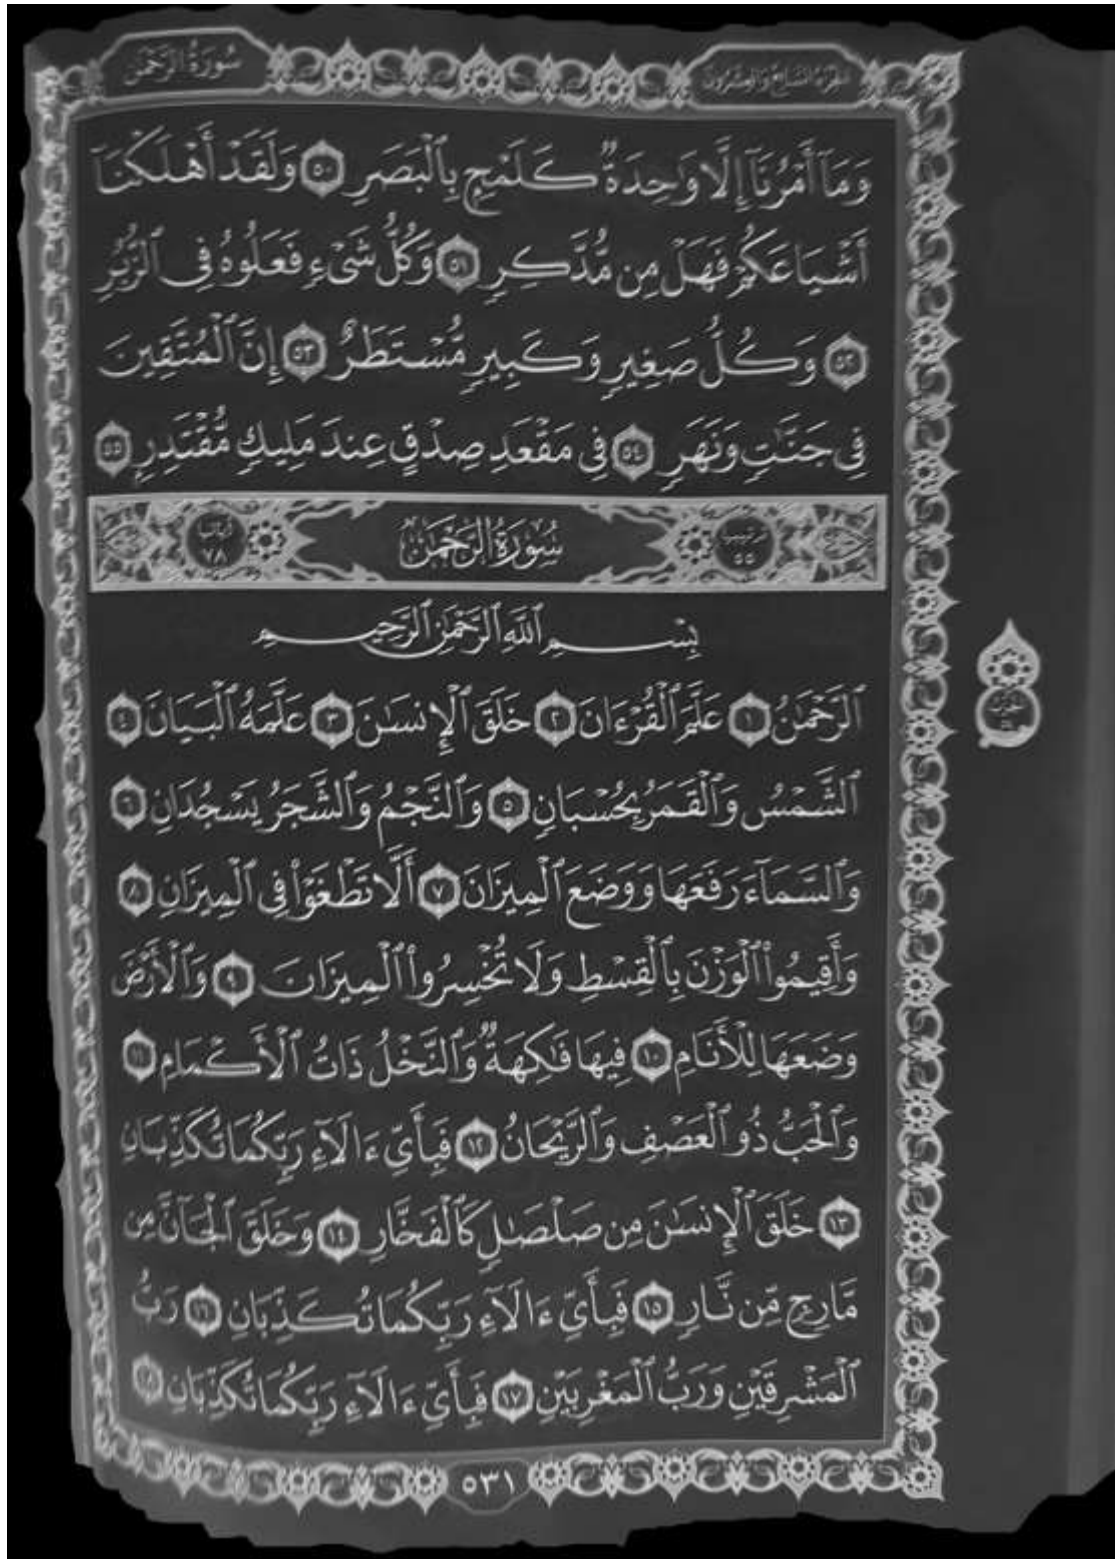 سُورَةُ الرَّحْمَٰن
الجزء السابع والعشرون
وَمَآ أَمْرُنَآ إِلَّا وَٰحِدَةٌ كَلَمْحٍ بِٱلْبَصَرِ ٥٠ وَلَقَدْ أَهْلَكْنَآ
أَشْيَاعَكُمْ فَهَلْ مِن مُّدَّكِرٍ ٥١ وَكُلُّ شَىْءٍ فَعَلُوهُ فِى ٱلزُّبُرِ
٥٢ وَكُلُّ صَغِيرٍ وَكَبِيرٍ مُّسْتَطَرٌ ٥٣ إِنَّ ٱلْمُتَّقِينَ
فِى جَنَّٰتٍ وَنَهَرٍ ٥٤ فِى مَقْعَدِ صِدْقٍ عِندَ مَلِيكٍ مُّقْتَدِرٍۭ ٥٥
ترتيبها ٥٥ سُورَةُ الرَّحْمَٰن آياتها ٧٨
بِسْمِ ٱللَّهِ ٱلرَّحْمَٰنِ ٱلرَّحِيمِ
ٱلرَّحْمَٰنُ ١ عَلَّمَ ٱلْقُرْءَانَ ٢ خَلَقَ ٱلْإِنسَٰنَ ٣ عَلَّمَهُ ٱلْبَيَانَ ٤
ٱلشَّمْسُ وَٱلْقَمَرُ بِحُسْبَانٍ ٥ وَٱلنَّجْمُ وَٱلشَّجَرُ يَسْجُدَانِ ٦
وَٱلسَّمَآءَ رَفَعَهَا وَوَضَعَ ٱلْمِيزَانَ ٧ أَلَّا تَطْغَوْا۟ فِى ٱلْمِيزَانِ ٨
وَأَقِيمُوا۟ ٱلْوَزْنَ بِٱلْقِسْطِ وَلَا تُخْسِرُوا۟ ٱلْمِيزَانَ ٩ وَٱلْأَرْضَ
وَضَعَهَا لِلْأَنَامِ ١٠ فِيهَا فَٰكِهَةٌ وَٱلنَّخْلُ ذَاتُ ٱلْأَكْمَامِ ١١
وَٱلْحَبُّ ذُو ٱلْعَصْفِ وَٱلرَّيْحَانُ ١٢ فَبِأَىِّ ءَالَآءِ رَبِّكُمَا تُكَذِّبَانِ
١٣ خَلَقَ ٱلْإِنسَٰنَ مِن صَلْصَٰلٍ كَٱلْفَخَّارِ ١٤ وَخَلَقَ ٱلْجَآنَّ مِن
مَّارِجٍ مِّن نَّارٍ ١٥ فَبِأَىِّ ءَالَآءِ رَبِّكُمَا تُكَذِّبَانِ ١٦ رَبُّ
ٱلْمَشْرِقَيْنِ وَرَبُّ ٱلْمَغْرِبَيْنِ ١٧ فَبِأَىِّ ءَالَآءِ رَبِّكُمَا تُكَذِّبَانِ ١٨
٥٣١